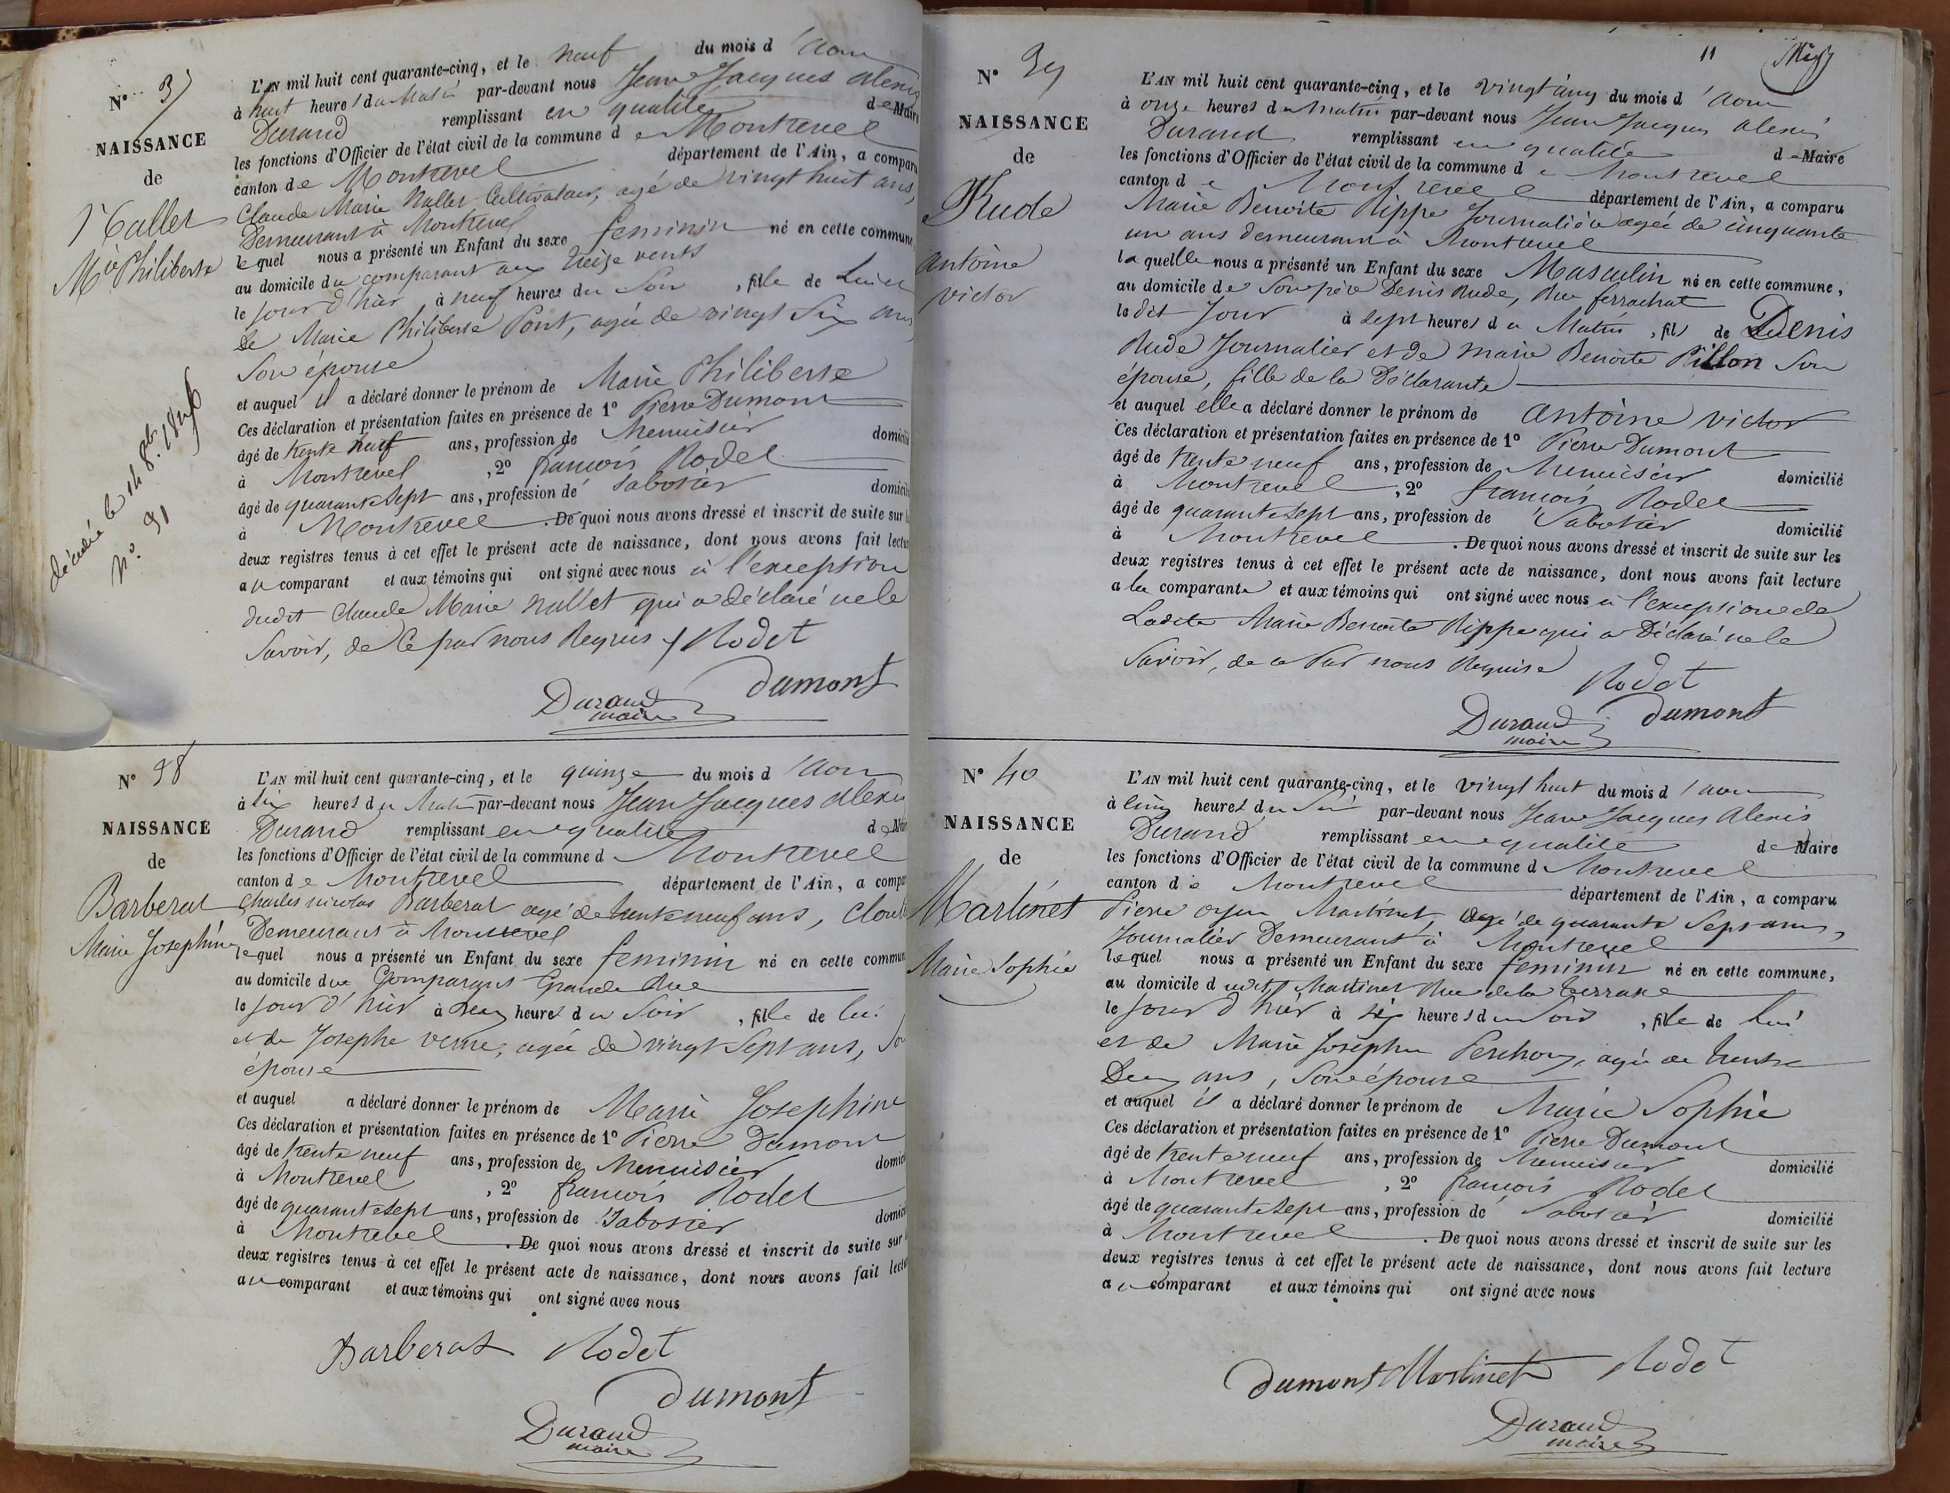 N° 37
NAISSANCE
de
Nallet
Mie Philiberte
décédé le 14 8bre 1846
N° 91
L'AN mil huit cent quarante-cinq, et le neuf du mois d'aout
à huit heures du Matin par-devant nous Jean Jacques Alexis
Durand remplissant en qualité de Maire
les fonctions d'Officier de l'état civil de la commune de Montrevel
canton de Montrevel département de l'Ain, a comparu
Claude Marie Nallet Cultivateur, agé de vingt huit ans,
Demeurant à Montrevel
lequel nous a présenté un Enfant du sexe feminin né en cette commune
au domicile du comparant aux treize vents
le jour d'hier à neuf heures du Soir, fille de Lui et
de Marie Philiberte Pont, agée de vingt Six ans
Son épouse
et auquel il a déclaré donner le prénom de Marie Philiberte
Ces déclaration et présentation faites en présence de 1° Pierre Dumont
âgé de trente neuf ans, profession de Menuisier domicilié
à Montrevel, 2° françois Rodet
âgé de quarante sept ans, profession de Sabotier domicilié
à Montrevel. De quoi nous avons dressé et inscrit de suite sur
deux registres tenus à cet effet le présent acte de naissance, dont nous avons fait lecture
au comparant et aux témoins qui ont signé avec nous à l'exception
dudit Claude Marie Nallet qui a déclaré ne le
Savoir, de ce par nous Requis
Rodet
Dumont
Durand
maire
N° 38
NAISSANCE
de
Barberat
Marie Josephine
L'AN mil huit cent quarante-cinq, et le quinze du mois d'aout
à six heures du Matin par-devant nous Jean Jacques Alexis
Durand remplissant en qualité de Maire
les fonctions d'Officier de l'état civil de la commune d Montrevel
canton de Montrevel département de l'Ain, a comparu
Charles nicolas Barberat agé de trente neuf ans,
Demeurant à Montrevel
lequel nous a présenté un Enfant du sexe feminin né en cette commune
au domicile du Comparant Grande Rue
le jour d'hier à Deux heures du Soir, fille de lui
et de Josephe verne, agée de vingt Sept ans, Son
épouse
et auquel a déclaré donner le prénom de Marie Josephine
Ces déclaration et présentation faites en présence de 1° Pierre Dumont
âgé de trente neuf ans, profession de Menuisier domicilié
à Montrevel, 2° françois Rodet
âgé de quarante sept ans, profession de Sabotier domicilié
à Montrevel. De quoi nous avons dressé et inscrit de suite sur
deux registres tenus à cet effet le présent acte de naissance, dont nous avons fait lecture
au comparant et aux témoins qui ont signé avec nous
Barberat Rodet
Dumont
Durand
maire
11
N° 39
NAISSANCE
de
Rude
antoine
victor
L'AN mil huit cent quarante-cinq, et le vingt cinq du mois d'aout
à onze heures du matin par-devant nous Jean Jacques alexis
Durand remplissant en qualité de Maire
les fonctions d'Officier de l'état civil de la commune de Montrevel
canton de Montrevel département de l'Ain, a comparu
Marie Benoite Rippe Journalière agée de cinquante
un ans demeurant à Montrevel
laquelle nous a présenté un Enfant du sexe Masculin né en cette commune,
au domicile de Son père Denis Rude, Rue ferrachat
le dit Jour à sept heures du Matin, fils de Denis
Rude Journalier et de marie Benoite Pillon Son
épouse, fille de la Déclarante
et auquel elle a déclaré donner le prénom de antoine victor
Ces déclaration et présentation faites en présence de 1° Pierre Dumont
âgé de trente neuf ans, profession de Menuisier domicilié
à Montrevel, 2° françois Rodet
âgé de quarante sept ans, profession de Sabotier domicilié
à Montrevel. De quoi nous avons dressé et inscrit de suite sur les
deux registres tenus à cet effet le présent acte de naissance, dont nous avons fait lecture
a la comparante et aux témoins qui ont signé avec nous à l'exception de
Ladite Marie Benoite Rippe qui a Déclaré ne le
Savoir, de ce Par nous Requise
Rodet
Durand Dumont
maire
N° 40
NAISSANCE
de
Martinet
Marie Sophie
L'AN mil huit cent quarante-cinq, et le vingt huit du mois d'aout
à cinq heures du Soir par-devant nous Jean Jacques Alexis
Durand remplissant en qualité de Maire
les fonctions d'Officier de l'état civil de la commune d Montrevel
canton de Montrevel département de l'Ain, a comparu
Pierre Martinet, agé de quarante Sept ans,
Journalier Demeurant à Montrevel
lequel nous a présenté un Enfant du sexe feminin né en cette commune,
au domicile dudit Martinet Rue de la terrasse
le jour d'hier à six heures du Soir, fille de Lui
et de Marie Josephe, agée de trente
Deux ans, Son épouse
et auquel il a déclaré donner le prénom de Marie Sophie
Ces déclaration et présentation faites en présence de 1° Pierre Dumont
âgé de trente neuf ans, profession de Menuisier domicilié
à Montrevel, 2° françois Rodet
âgé de quarante sept ans, profession de Sabotier domicilié
à Montrevel. De quoi nous avons dressé et inscrit de suite sur les
deux registres tenus à cet effet le présent acte de naissance, dont nous avons fait lecture
au comparant et aux témoins qui ont signé avec nous
Dumont Martinet Rodet
Durand
maire